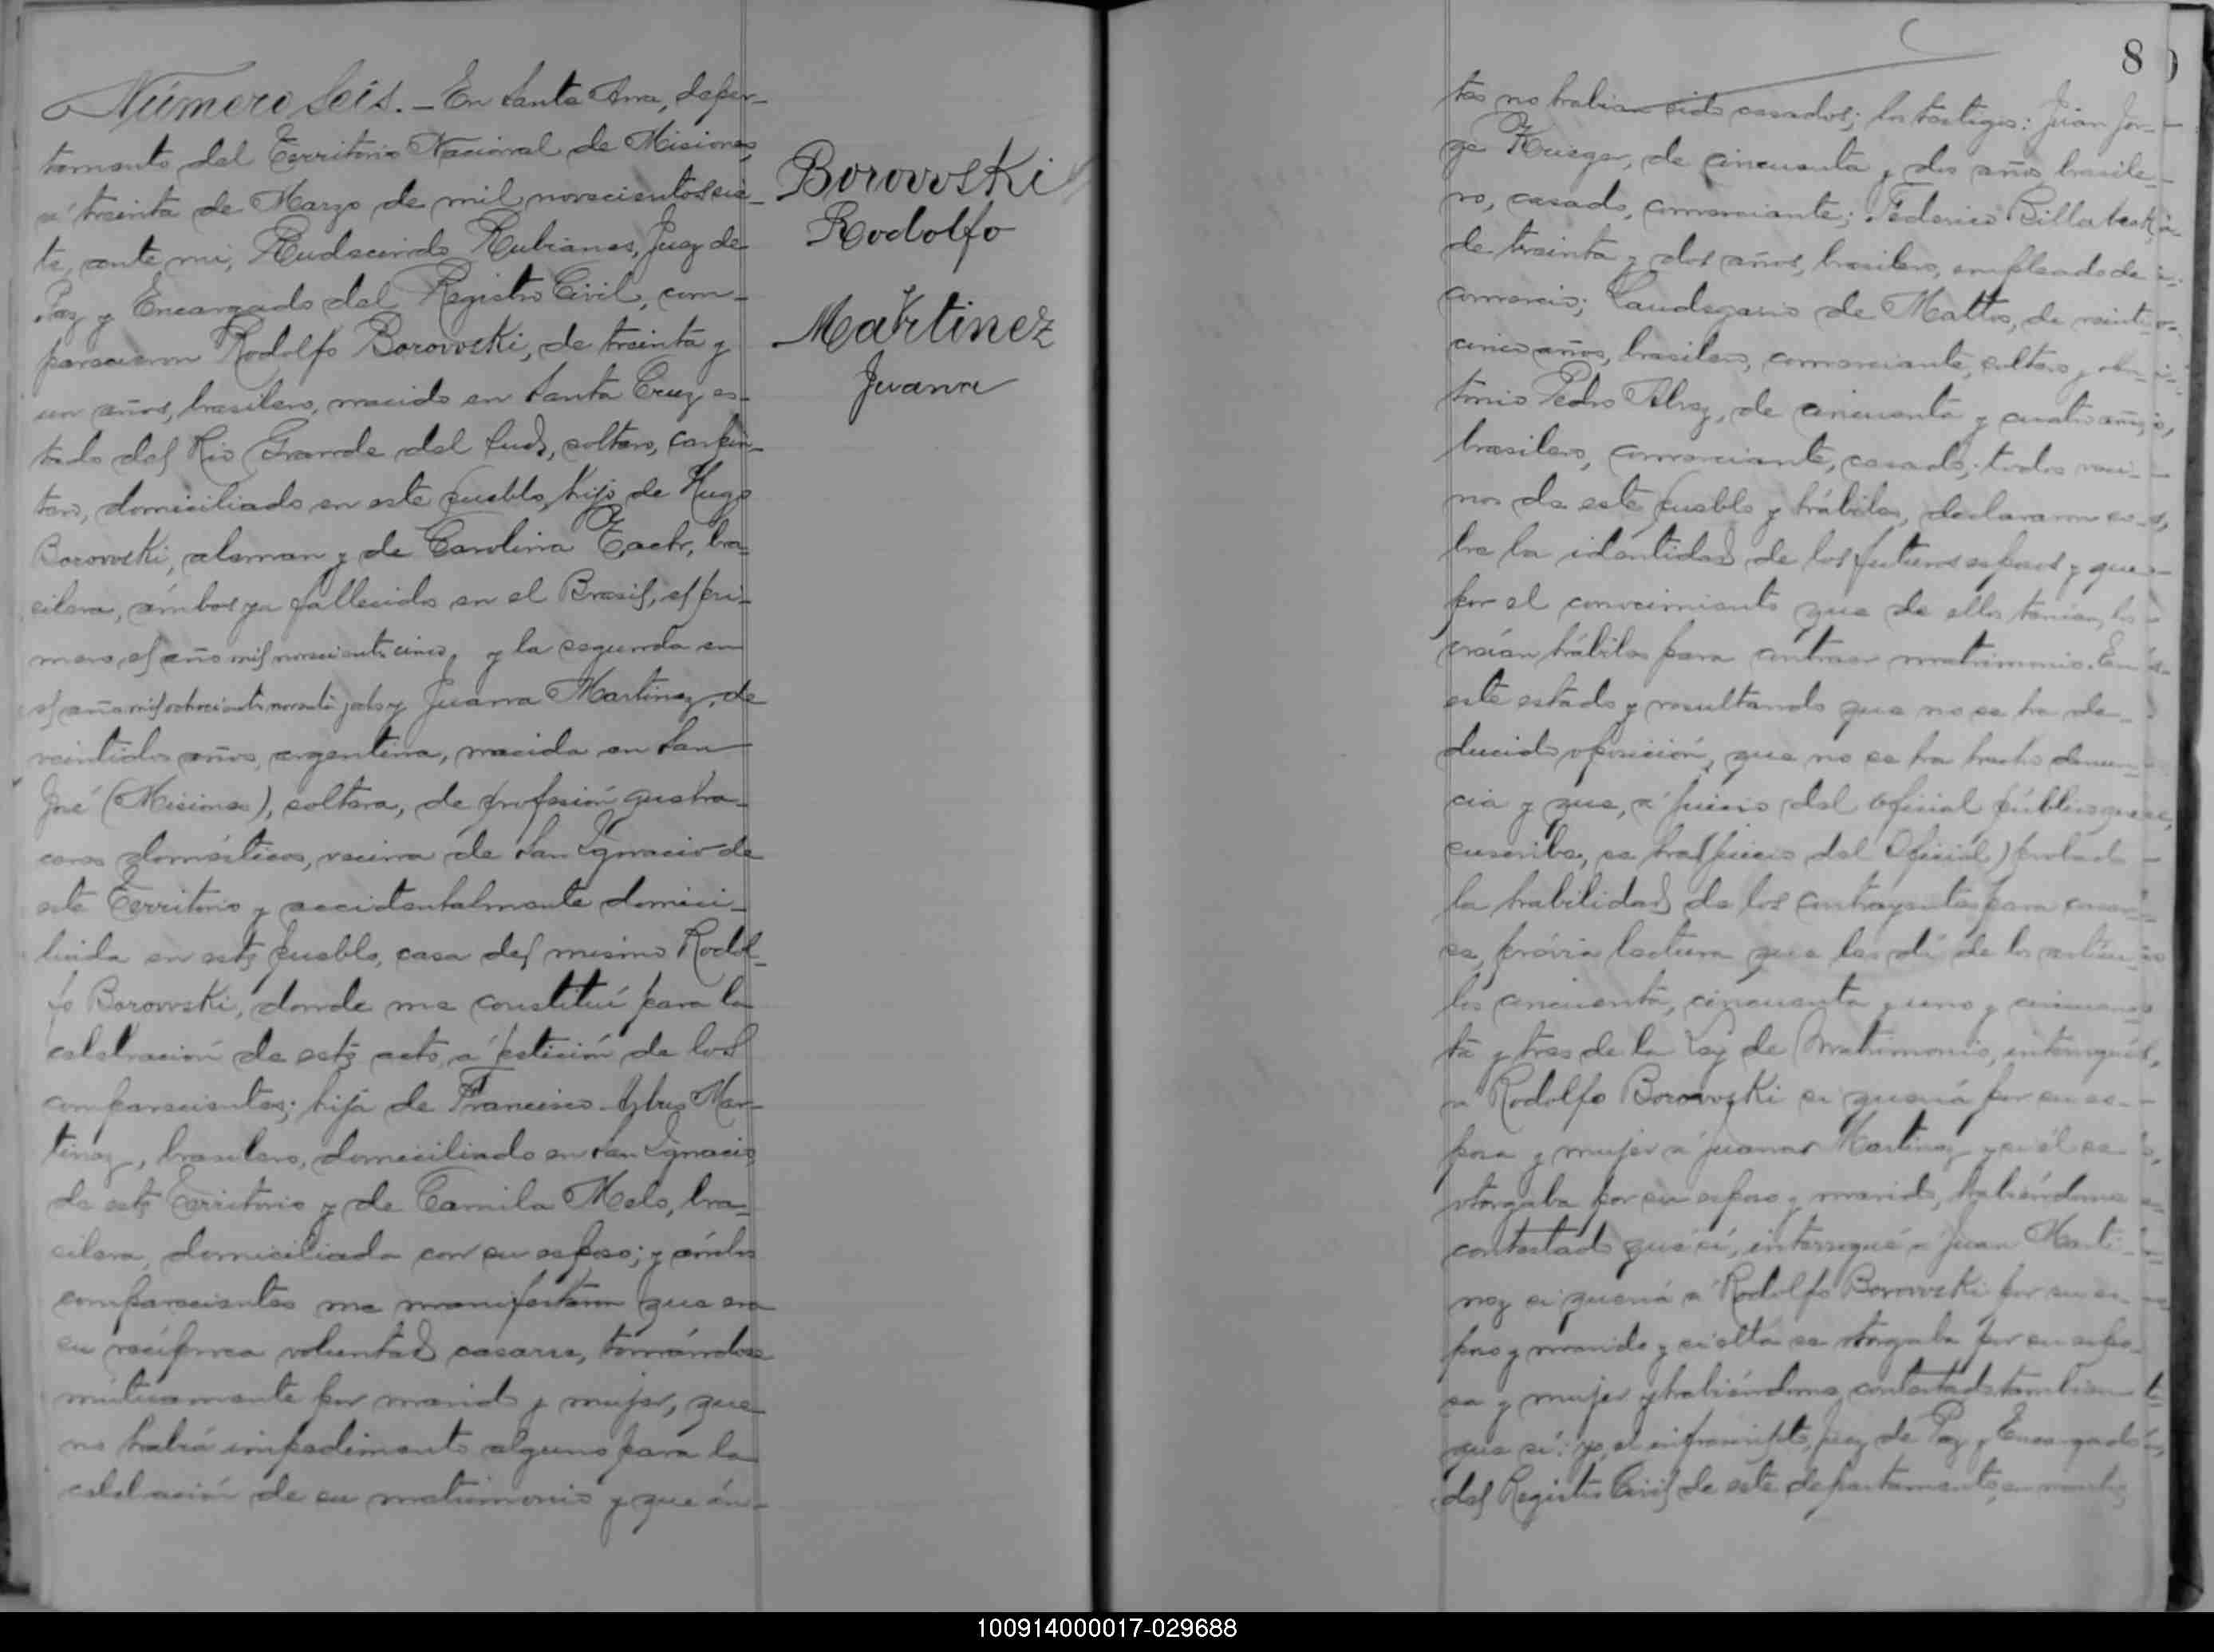 Número Seis. — En Santa Ana, depar-
tamento del Territorio Nacional de Misiones,
a' treinta de Marzo de mil novecientos sie-
te, ante mi, Rudecindo Rubianes, Juez de
Paz y Encargado del Registro Civil, com-
parecieron Rodolfo Borovvski, de treinta y
un años, brasilero, nacido en Santa Cruz es-
tado del Rio Grande del Sud, soltero, carpin-
tero, domiciliado en este pueblo, hijo de Hugo
Borovvski, aleman y de Carolina bra-
silera, ámbos ya fallecidos en el Brasil, el pri-
mero, el año mil novecientos cinco, y la segunda en
el año mil ochocientos noventa y Juana Martinez, de
veintidos años, argentina, nacida en San
José (Misiones), soltera, de profesión queha-
ceres domésticos, vecina de San Ignacio de
este Territorio y accidentalmente domici-
liada en este pueblo, casa del mismo Rodol-
fo Borovvski, donde me constituí para la
celebración de este acto, a' petición de los
comparecientes; hija de Francisco Mar-
tinez, brasilero, domiciliado en San Ignacio
de este Territorio y de Camila Melo, bra-
silera, domiciliada con su esposo; y ámbos
comparecientes me manifestaron que era
su recíproca voluntad casarse, tomándose
mútuamente por marido y mujer, que
no habia impedimento alguno para la
celebración de su matrimonio y que án-
Borovvski
Rodolfo
Martinez
Juana
8
tes no habian sido casados; los testigos: Juan Jor-
ge Krieger, de cincuenta y dos años, brasile-
ro, casado, comerciante; Federico
de treinta y dos años, brasilero, empleado de
comercio; Laudegario de Mattos, de veinti
cinco años, brasilero, comerciante, soltero y An-
tonio Pedro de cincuenta y cuatro años,
brasilero, comerciante, casado; todos veci-
nos de este pueblo y hábiles, declararon so-
bre la idéntidad de los futuros esposos y que
por el conocimiento que de ellos tenian, los
creían hábiles para contraer matrimonio. En
este estado y resultando que no se ha de-
ducido oposición, que no se ha hecho denun-
cia y que, a' juicio del oficial público que
suscribe, se ha (juicio del Oficial) probado
la habilidad de los contrayentes para casar-
se, prévia lectura que les dí de los artícu-
los cincuenta, cincuenta y uno y cincuen-
ta y tres de la Ley de Matrimonio, interrogué
a Rodolfo Borovvski si queria por su es-
posa y mujer a' Juana Martinez y si él se
otorgaba por su esposo y marido, habiéndome
contestado que sí, interrogué a' Juan Marti-
nez si queria a' Rodolfo Borovvski por su es-
poso y marido y si ella se otorgaba por su espo-
sa y mujer y habiéndome contestado tambien
que sí: yo, el infrascripto, Juez de Paz y Encargado
del Registro Civil de este departamento, en nombre
100914000017-029688